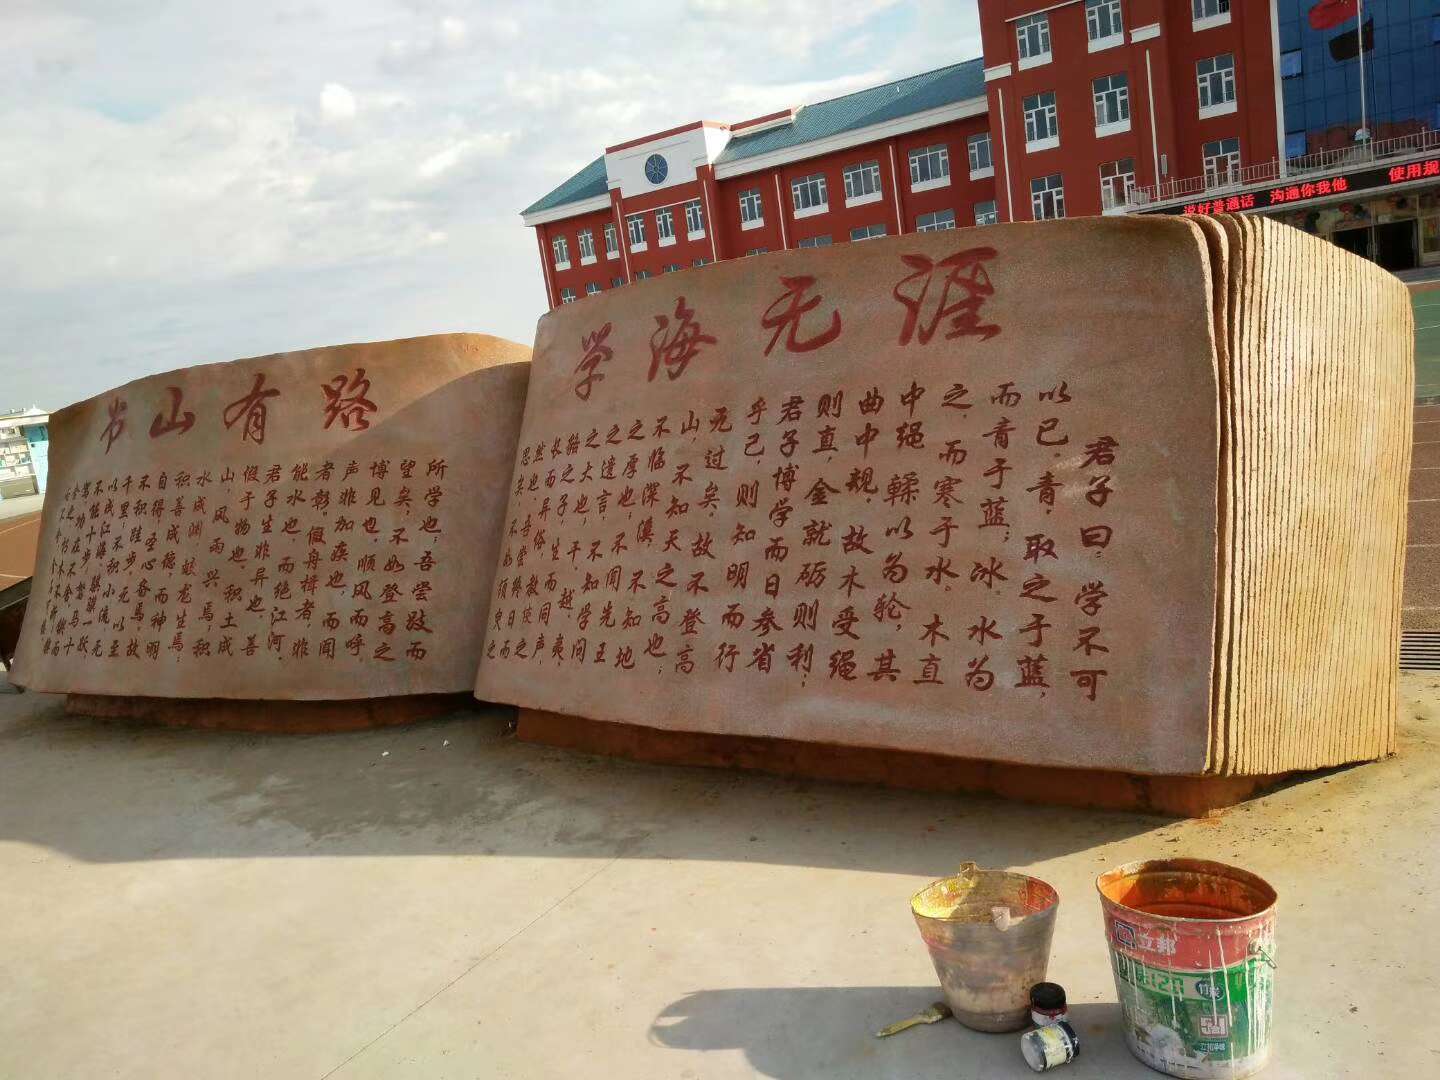 说好普通话 沟通你我他 使用规
学海无涯
君子曰:学不可
以已,青,取之于蓝,
而青于蓝;冰。水为
之,而寒于水。木直
中绳 輮以为轮,其
曲中规 故木受绳
则直,金就砺则利;
君子博学而日参省
乎己,则知明而行
无过矣。故不登高
山,不知天之高也;
不临深溪,不知地
之厚也;不闻先王
之遗言,不知学问
之大也,干、越、夷、
貉之子,生而同声,
长而异俗,教使之
然也。吾尝终日而
思矣,不如须臾之
书山有路
所学也;吾尝跂而
望矣,不如登高之
博见也。顺风而呼,
声非加疾也,而闻
者彰。假舟楫者,非
能水也,而绝江河。
君子生非异也,善
假于物也。积土成
山,风雨兴焉;积
水成渊,蛟龙生焉;
积善成德,而神明
自得,圣心备焉。故
不积跬步,无以至
千里;不积小流,无
以成江海。骐骥一跃,
不能十步;驽马十
驾,功在不舍。锲而
立邦
120